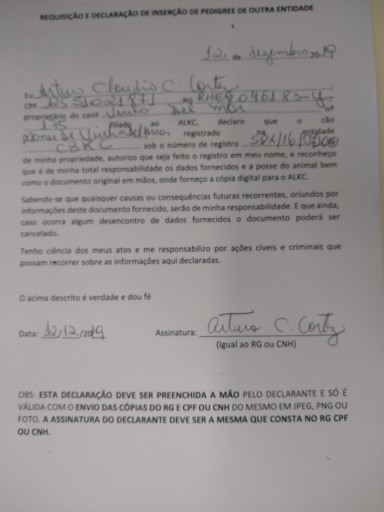 REQUISIÇÃO E DECLARAÇÃO DE INSERÇÃO DE PEDIGREE DE OUTRA ENTIDADE
12, de dezembro 2019
Eu Arturo Claudio C. Cortez
CPF
proprietário do canil Viña Del Mar nº
filiado ao ALKC, declaro que o cão
registrado na entidade
CBKC sob o número de registro
de minha propriedade, autorizo que seja feito o registro em meu nome, e reconheço
que é de minha total responsabilidade os dados fornecidos e a posse do animal bem
como o documento original em mãos, onde forneço a cópia digital para o ALKC.
Sabendo-se que quaisquer causas ou consequências futuras recorrentes, oriundos por
informações deste documento fornecido, serão de minha responsabilidade. E que ainda,
caso ocorra algum desencontro de dados fornecidos o documento poderá ser
cancelado.
Tenho ciência dos meus atos e me responsabilizo por ações cíveis e criminais que
possam recorrer sobre as informações aqui declaradas.
O acima descrito é verdade e dou fé
Data: 12/12/2019 Assinatura: Arturo C. Cortez
(Igual ao RG ou CNH)
OBS: ESTA DECLARAÇÃO DEVE SER PREENCHIDA A MÃO PELO DECLARANTE E SÓ É
VÁLIDA COM O ENVIO DAS CÓPIAS DO RG E CPF OU CNH DO MESMO EM JPEG, PNG OU
FOTO. A ASSINATURA DO DECLARANTE DEVE SER A MESMA QUE CONSTA NO RG CPF
OU CNH.